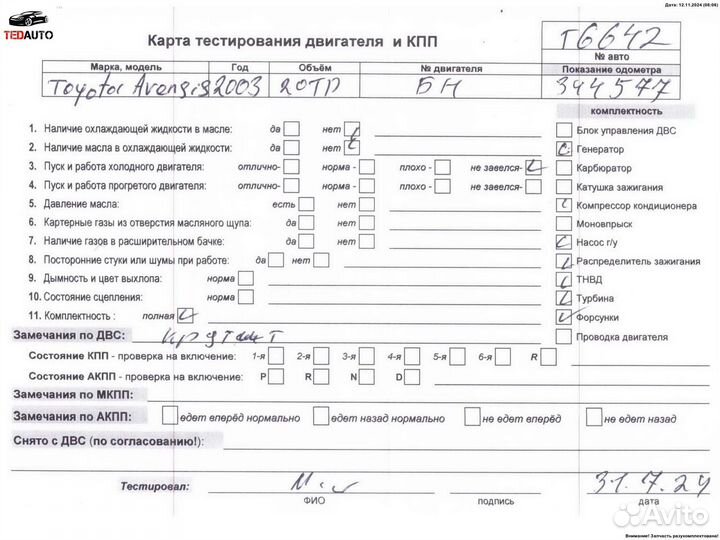 Дата: 12.11.2024 (08:06)
TEDAUTO
Карта тестирования двигателя и КПП
T6642
№ авто
Марка, модель Год Объём № двигателя Показание одометра
Toyota Avensis 2003 20TD БН 344577
комплектность
1. Наличие охлаждающей жидкости в масле: да нет
Блок управления ДВС
2. Наличие масла в охлаждающей жидкости: да нет
Генератор
3. Пуск и работа холодного двигателя: отлично- норма - плохо - не завелся-
Карбюратор
4. Пуск и работа прогретого двигателя: отлично- норма - плохо - не завелся-
Катушка зажигания
5. Давление масла: есть нет
Компрессор кондиционера
6. Картерные газы из отверстия масляного щупа: да нет
Моновпрыск
7. Наличие газов в расширительном бачке: да нет
Насос г/у
8. Посторонние стуки или шумы при работе: да нет
Распределитель зажигания
9. Дымность и цвет выхлопа: норма
ТНВД
10. Состояние сцепления: норма
Турбина
11. Комплектность : полная
Форсунки
Замечания по ДВС:
Проводка двигателя
Состояние КПП - проверка на включение: 1-я 2-я 3-я 4-я 5-я 6-я R
Состояние АКПП - проверка на включение: P R N D
Замечания по МКПП:
Замечания по АКПП: едет вперёд нормально едет назад нормально не едет вперёд не едет назад
Снято с ДВС (по согласованию!):
Тестировал: 31.7.24
ФИО подпись дата
Avito
Внимание! Запчасть разукомплектована!